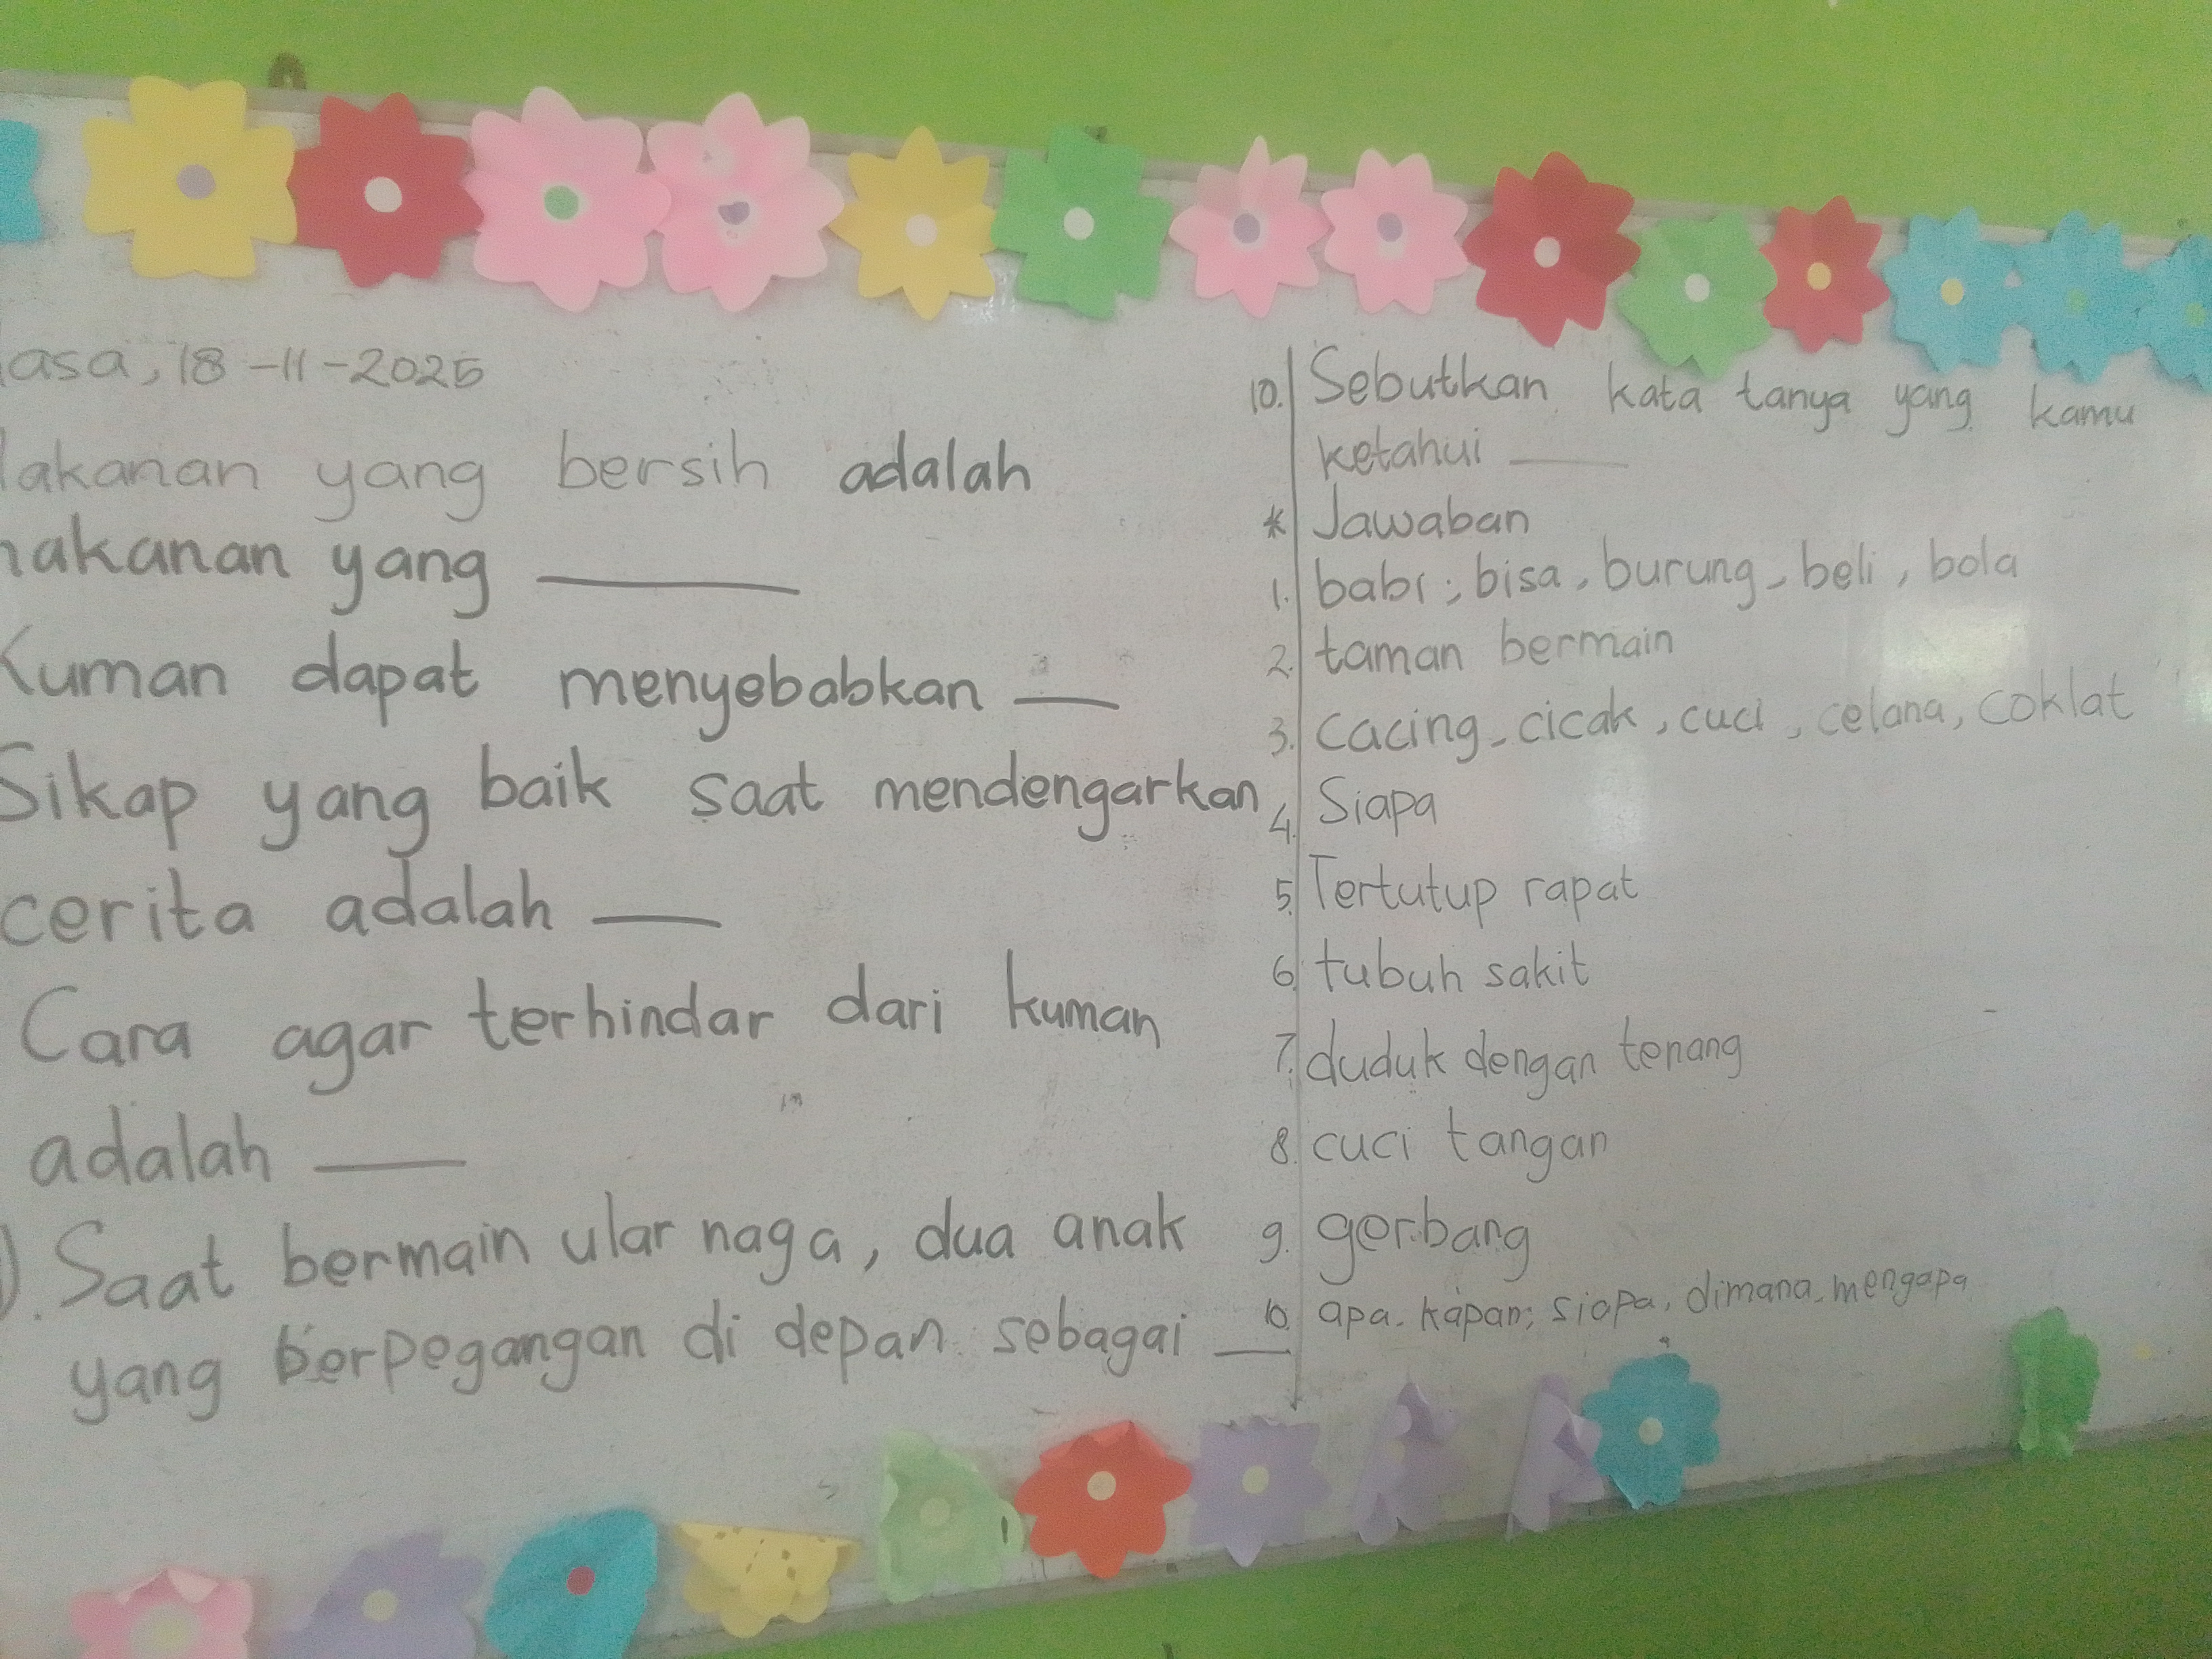 asa, 18-11-2025
akanan yang bersih adalah
akanan yang ____
Kuman dapat menyebabkan ____
Sikap yang baik saat mendengarkan
cerita adalah ____
Cara agar terhindar dari kuman
adalah ____
). Saat bermain ular naga, dua anak
yang berpegangan di depan sebagai ____
10. Sebutkan kata tanya yang kamu
ketahui ____
* Jawaban
1. babi, bisa, burung, beli, bola
2. taman bermain
3. cacing, cicak, cuci, celana, coklat
4. Siapa
5. Tertutup rapat
6. tubuh sakit
7. duduk dengan tenang
8. cuci tangan
9. gerbang
10. apa, kapan, siapa, dimana, mengapa